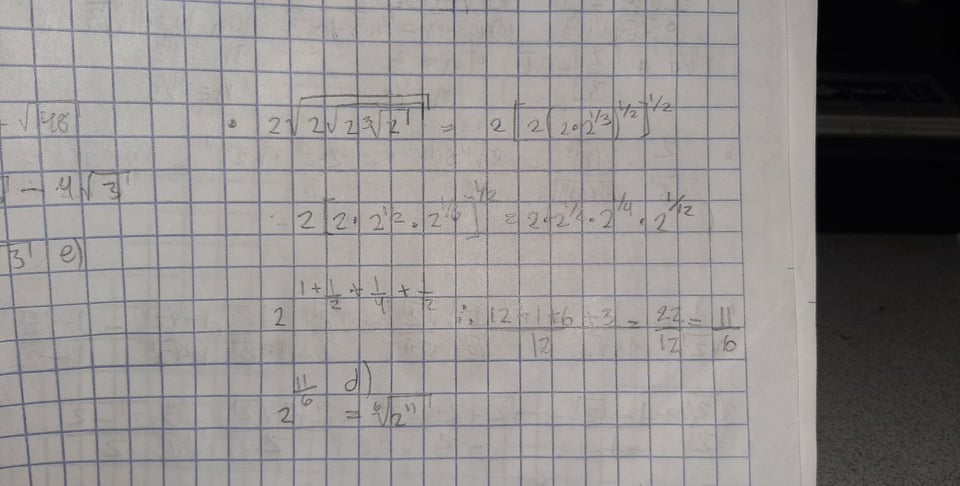 - √48
• 2√2√2∛2 = 2[2(2•2^1/3)^1/2]^1/2
- 4√3
2[2•2^1/2•2^1/6]^1/2 = 2•2^1/2•2^1/4•2^1/12
√3 e)
2^1+1/2+1/4+1/12 ∴ 12+1+6+3/12 = 22/12 = 11/6
2^11/6 d) = ⁶√2^11